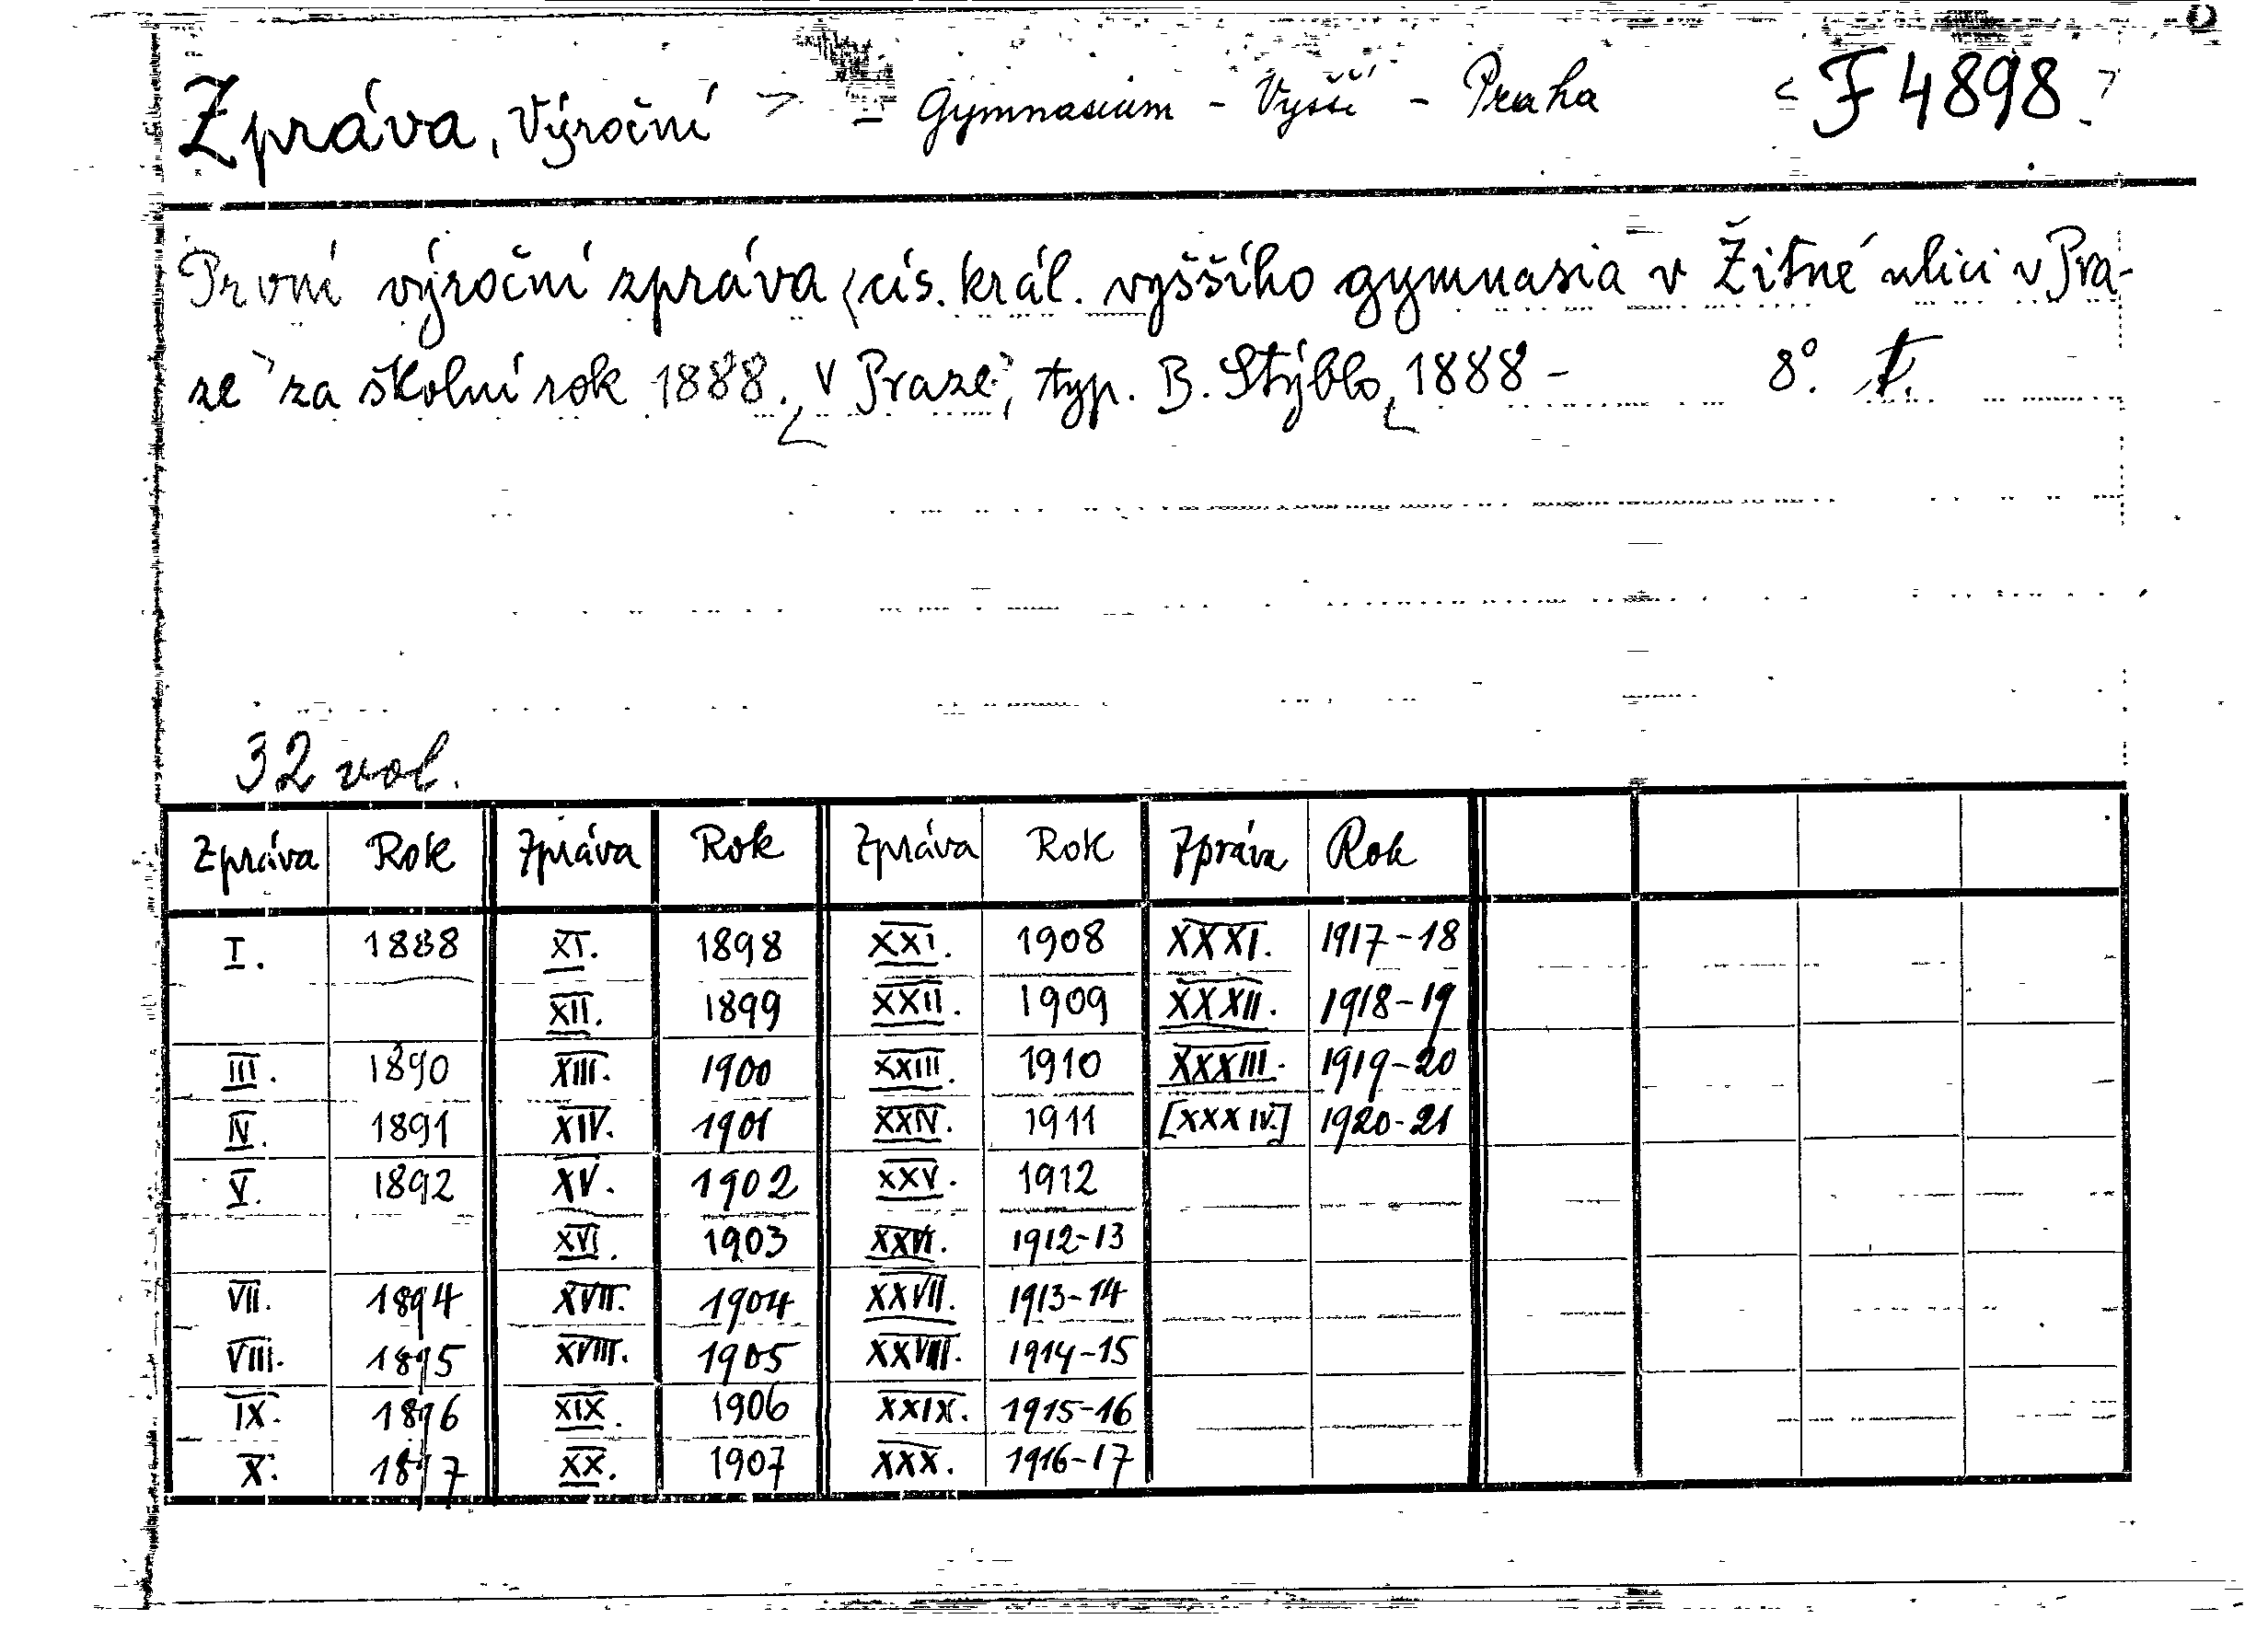 Zpráva, Výroční = Gymnasium - Vyšší - Praha F 4898.
První výroční zpráva cís. král. vyššího gymnasia v Žitné ulici v Pra-
ze za školní rok 1888. V Praze, typ. B. Stýblo, 1888 - 8°.
32 vol.
Zpráva Rok Zpráva Rok Zpráva Rok Zpráva Rok
I. 1888 XI. 1898 XXI. 1908 XXXI. 1917-18
XII. 1899 XXII. 1909 XXXII. 1918-19
III. 1890 XIII. 1900 XXIII. 1910 XXXIII. 1919-20
IV. 1891 XIV. 1901 XXIV. 1911 [XXXIV.] 1920-21
V. 1892 XV. 1902 XXV. 1912
XVI. 1903 XXVI. 1912-13
VII. 1894 XVII. 1904 XXVII. 1913-14
VIII. 1895 XVIII. 1905 XXVIII. 1914-15
IX. 1896 XIX. 1906 XXIX. 1915-16
X. 1897 XX. 1907 XXX. 1916-17